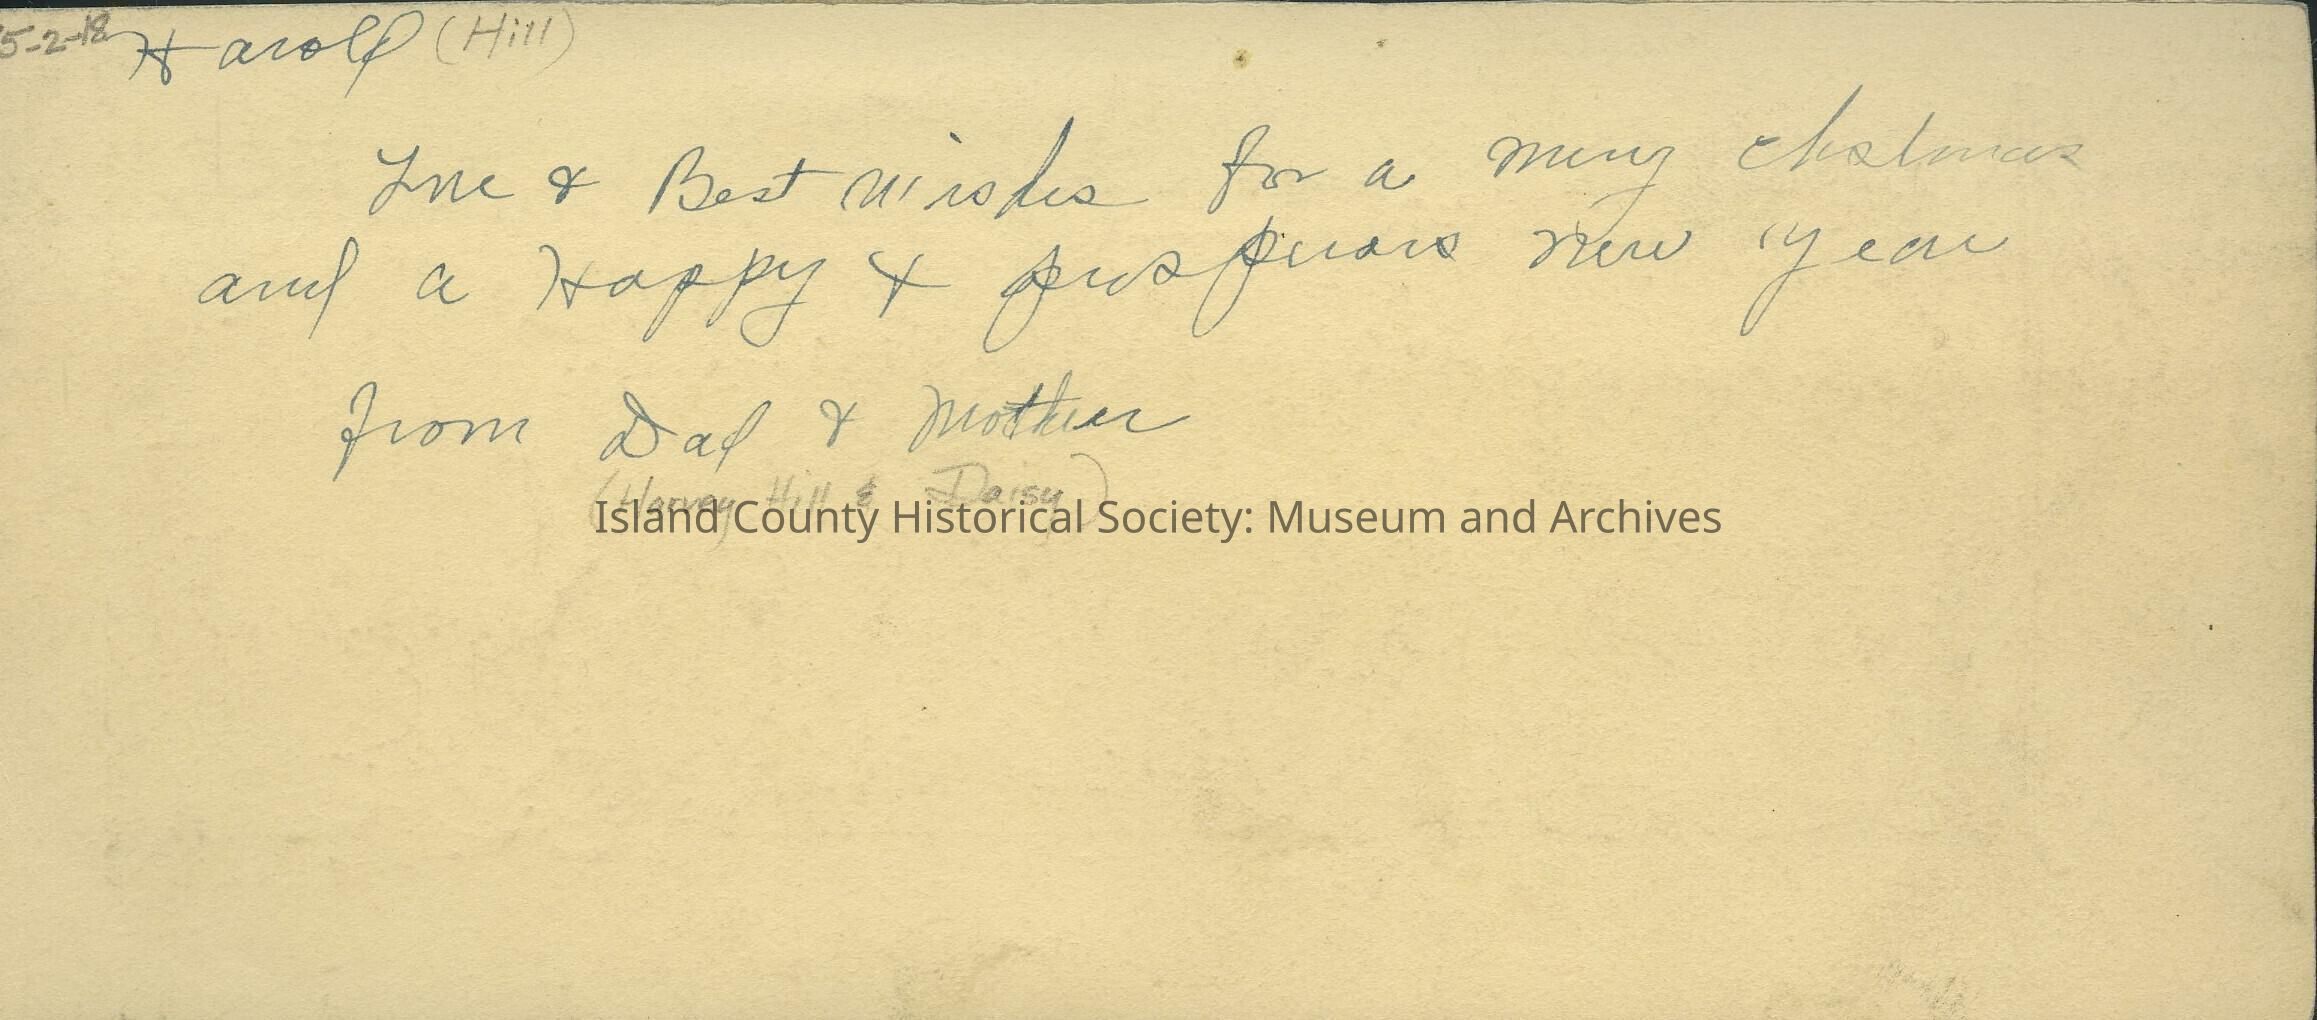 5-2-18 Harold (Hill)
Love & Best Wishes for a merry Chstmas
and a Happy & prosperous New Year
from Dad & Mother
(Harvey Hill & Daisy)
Island County Historical Society: Museum and Archives